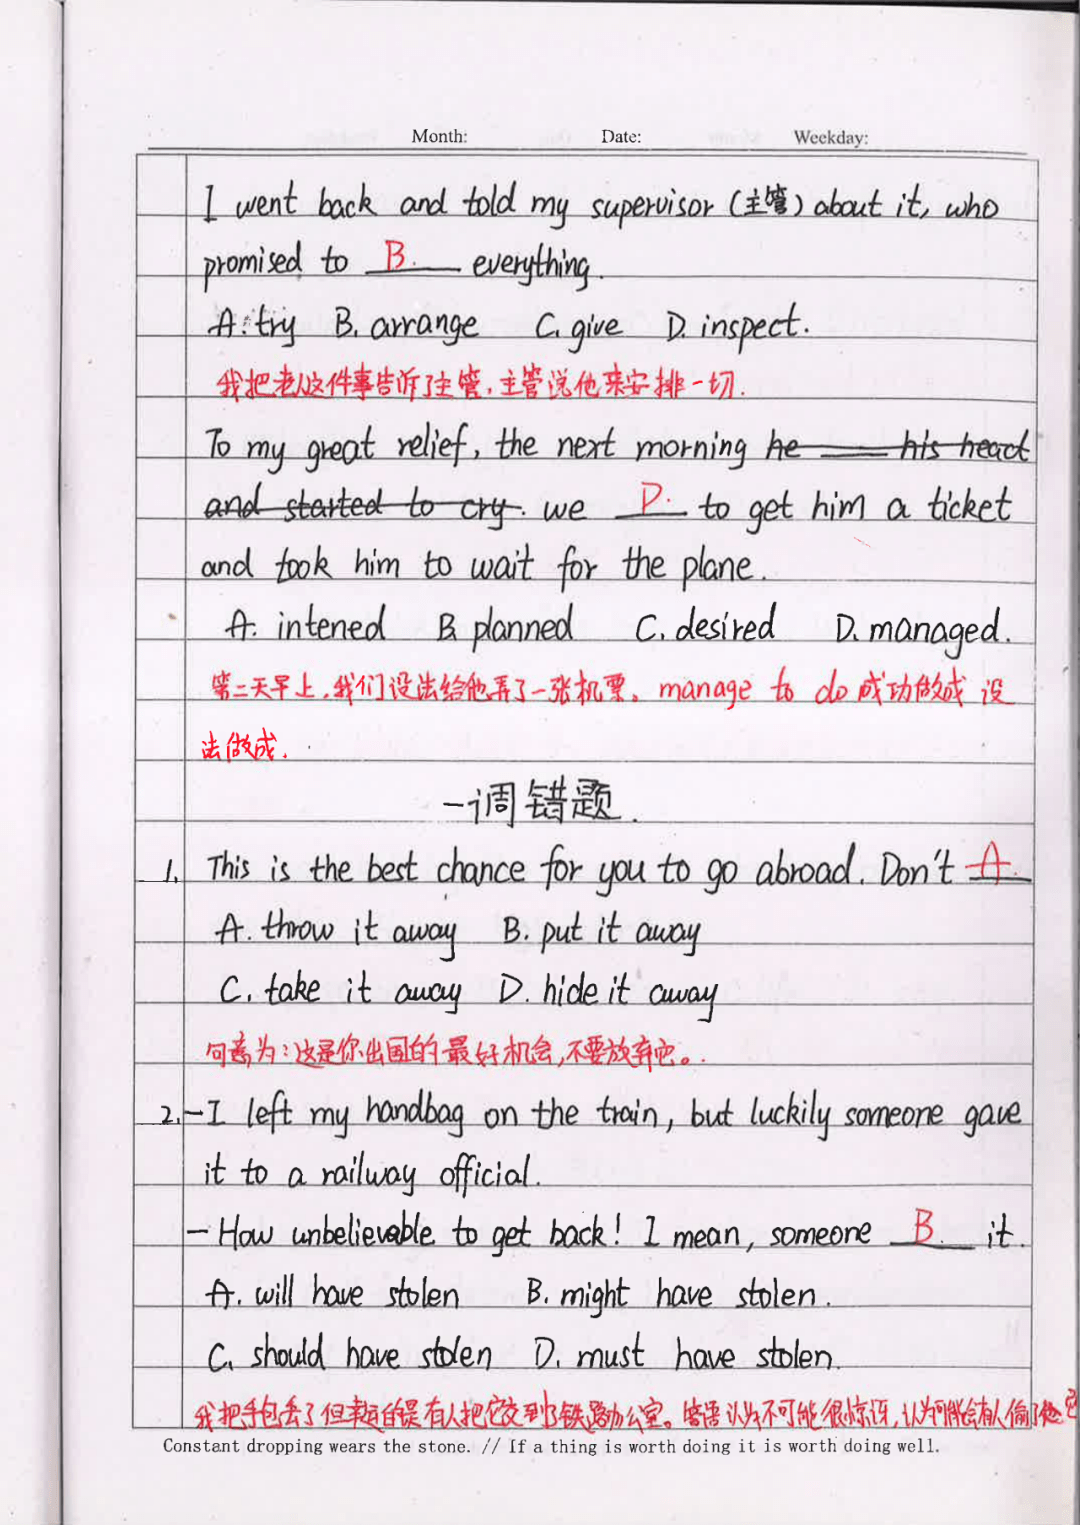 Month: Date: Weekday:
I went back and told my supervisor (主管) about it, who
promised to B. everything.
A. try B. arrange C. give D. inspect.
我把老人这件事告诉了主管,主管说他来安排一切.
To my great relief, the next morning he ____ his heart
and started to cry. we D. to get him a ticket
and took him to wait for the plane.
A. intened B. planned C. desired D. managed.
第二天早上,我们设法给他弄了一张机票。manage to do 成功做成 设
法做成.
一调错题.
1. This is the best chance for you to go abroad. Don't A.
A. throw it away B. put it away
C. take it away D. hide it away
句意为:这是你出国的最好机会,不要放弃它。
2. -I left my handbag on the train, but luckily someone gave
it to a railway official.
- How unbelievable to get back! I mean, someone B. it.
A. will have stolen B. might have stolen.
C. should have stolen D. must have stolen.
我把手包丢了但幸运的是有人把它交到了铁路办公室。答语认为不可能很惊讶,认为可能会有人偷了它
Constant dropping wears the stone. // If a thing is worth doing it is worth doing well.